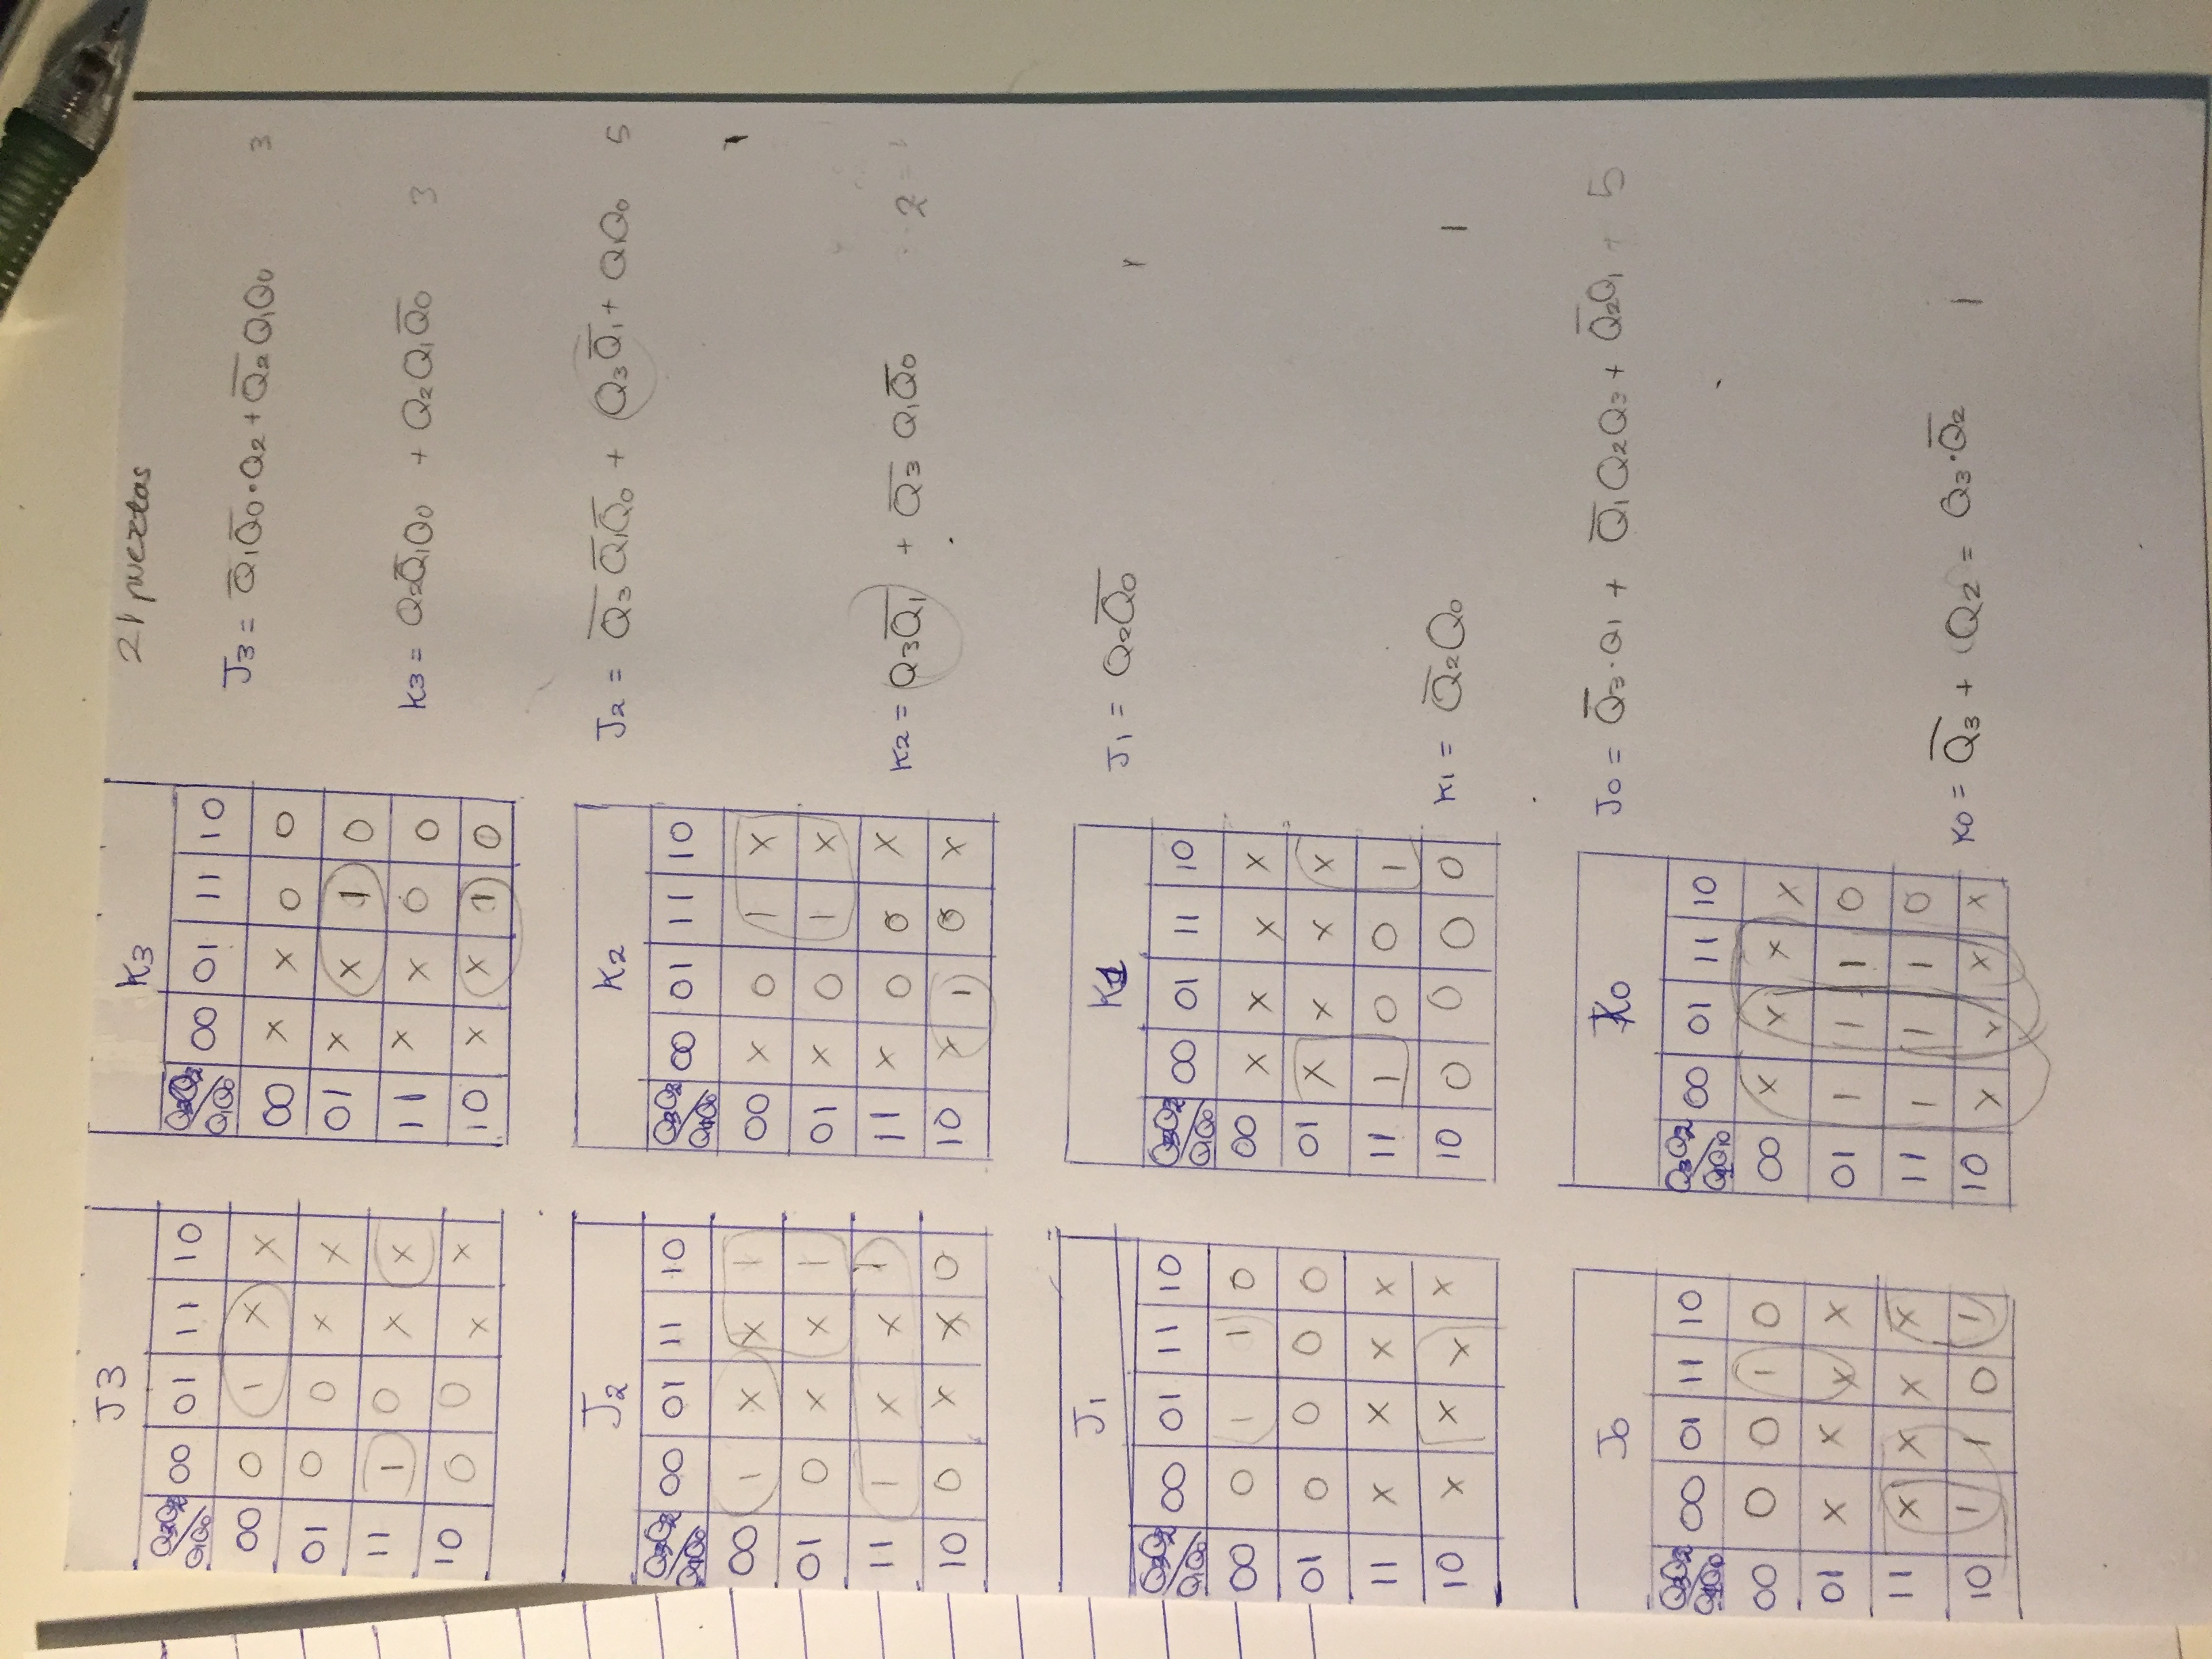 J3
Q3Q2/Q1Q0 00 01 11 10
00 0 1 X X
01 0 0 X X
11 1 0 X X
10 0 0 X X
K3
Q3Q2/Q1Q0 00 01 11 10
00 X X 0 0
01 X X 1 0
11 X X 0 0
10 X X 1 0
21 puertas
J3 = Q̅1Q̅0·Q2 + Q̅2Q1Q0 3
K3 = Q2Q̅1Q0 + Q2Q1Q̅0 3
J2
Q3Q2/Q1Q0 00 01 11 10
00 1 X X 1
01 0 X X 1
11 1 X X 1
10 0 X X 0
K2
Q3Q2/Q1Q0 00 01 11 10
00 X 0 1 X
01 X 0 1 X
11 X 0 0 X
10 X 1 0 X
J2 = Q̅3Q̅1Q̅0 + Q3Q̅1 + Q1Q0 5
1
K2 = Q3Q̅1 + Q̅3 Q1Q̅0 2
J1
Q3Q2/Q1Q0 00 01 11 10
00 0 1 1 0
01 0 0 0 0
11 X X X X
10 X X X X
K1
Q3Q2/Q1Q0 00 01 11 10
00 X X X X
01 X X X X
11 1 0 0 1
10 0 0 0 0
J1 = Q2Q̅0 1
K1 = Q̅2Q0 1
J0
Q3Q2/Q1Q0 00 01 11 10
00 0 0 1 0
01 X X X X
11 X X X X
10 1 1 0 1
K0
Q3Q2/Q1Q0 00 01 11 10
00 X X X X
01 1 1 1 0
11 1 1 1 0
10 X X X X
J0 = Q̅3·Q1 + Q̅1Q2Q3 + Q̅2Q1 5
K0 = Q̅3 + Q2 = Q3·Q̅2 1